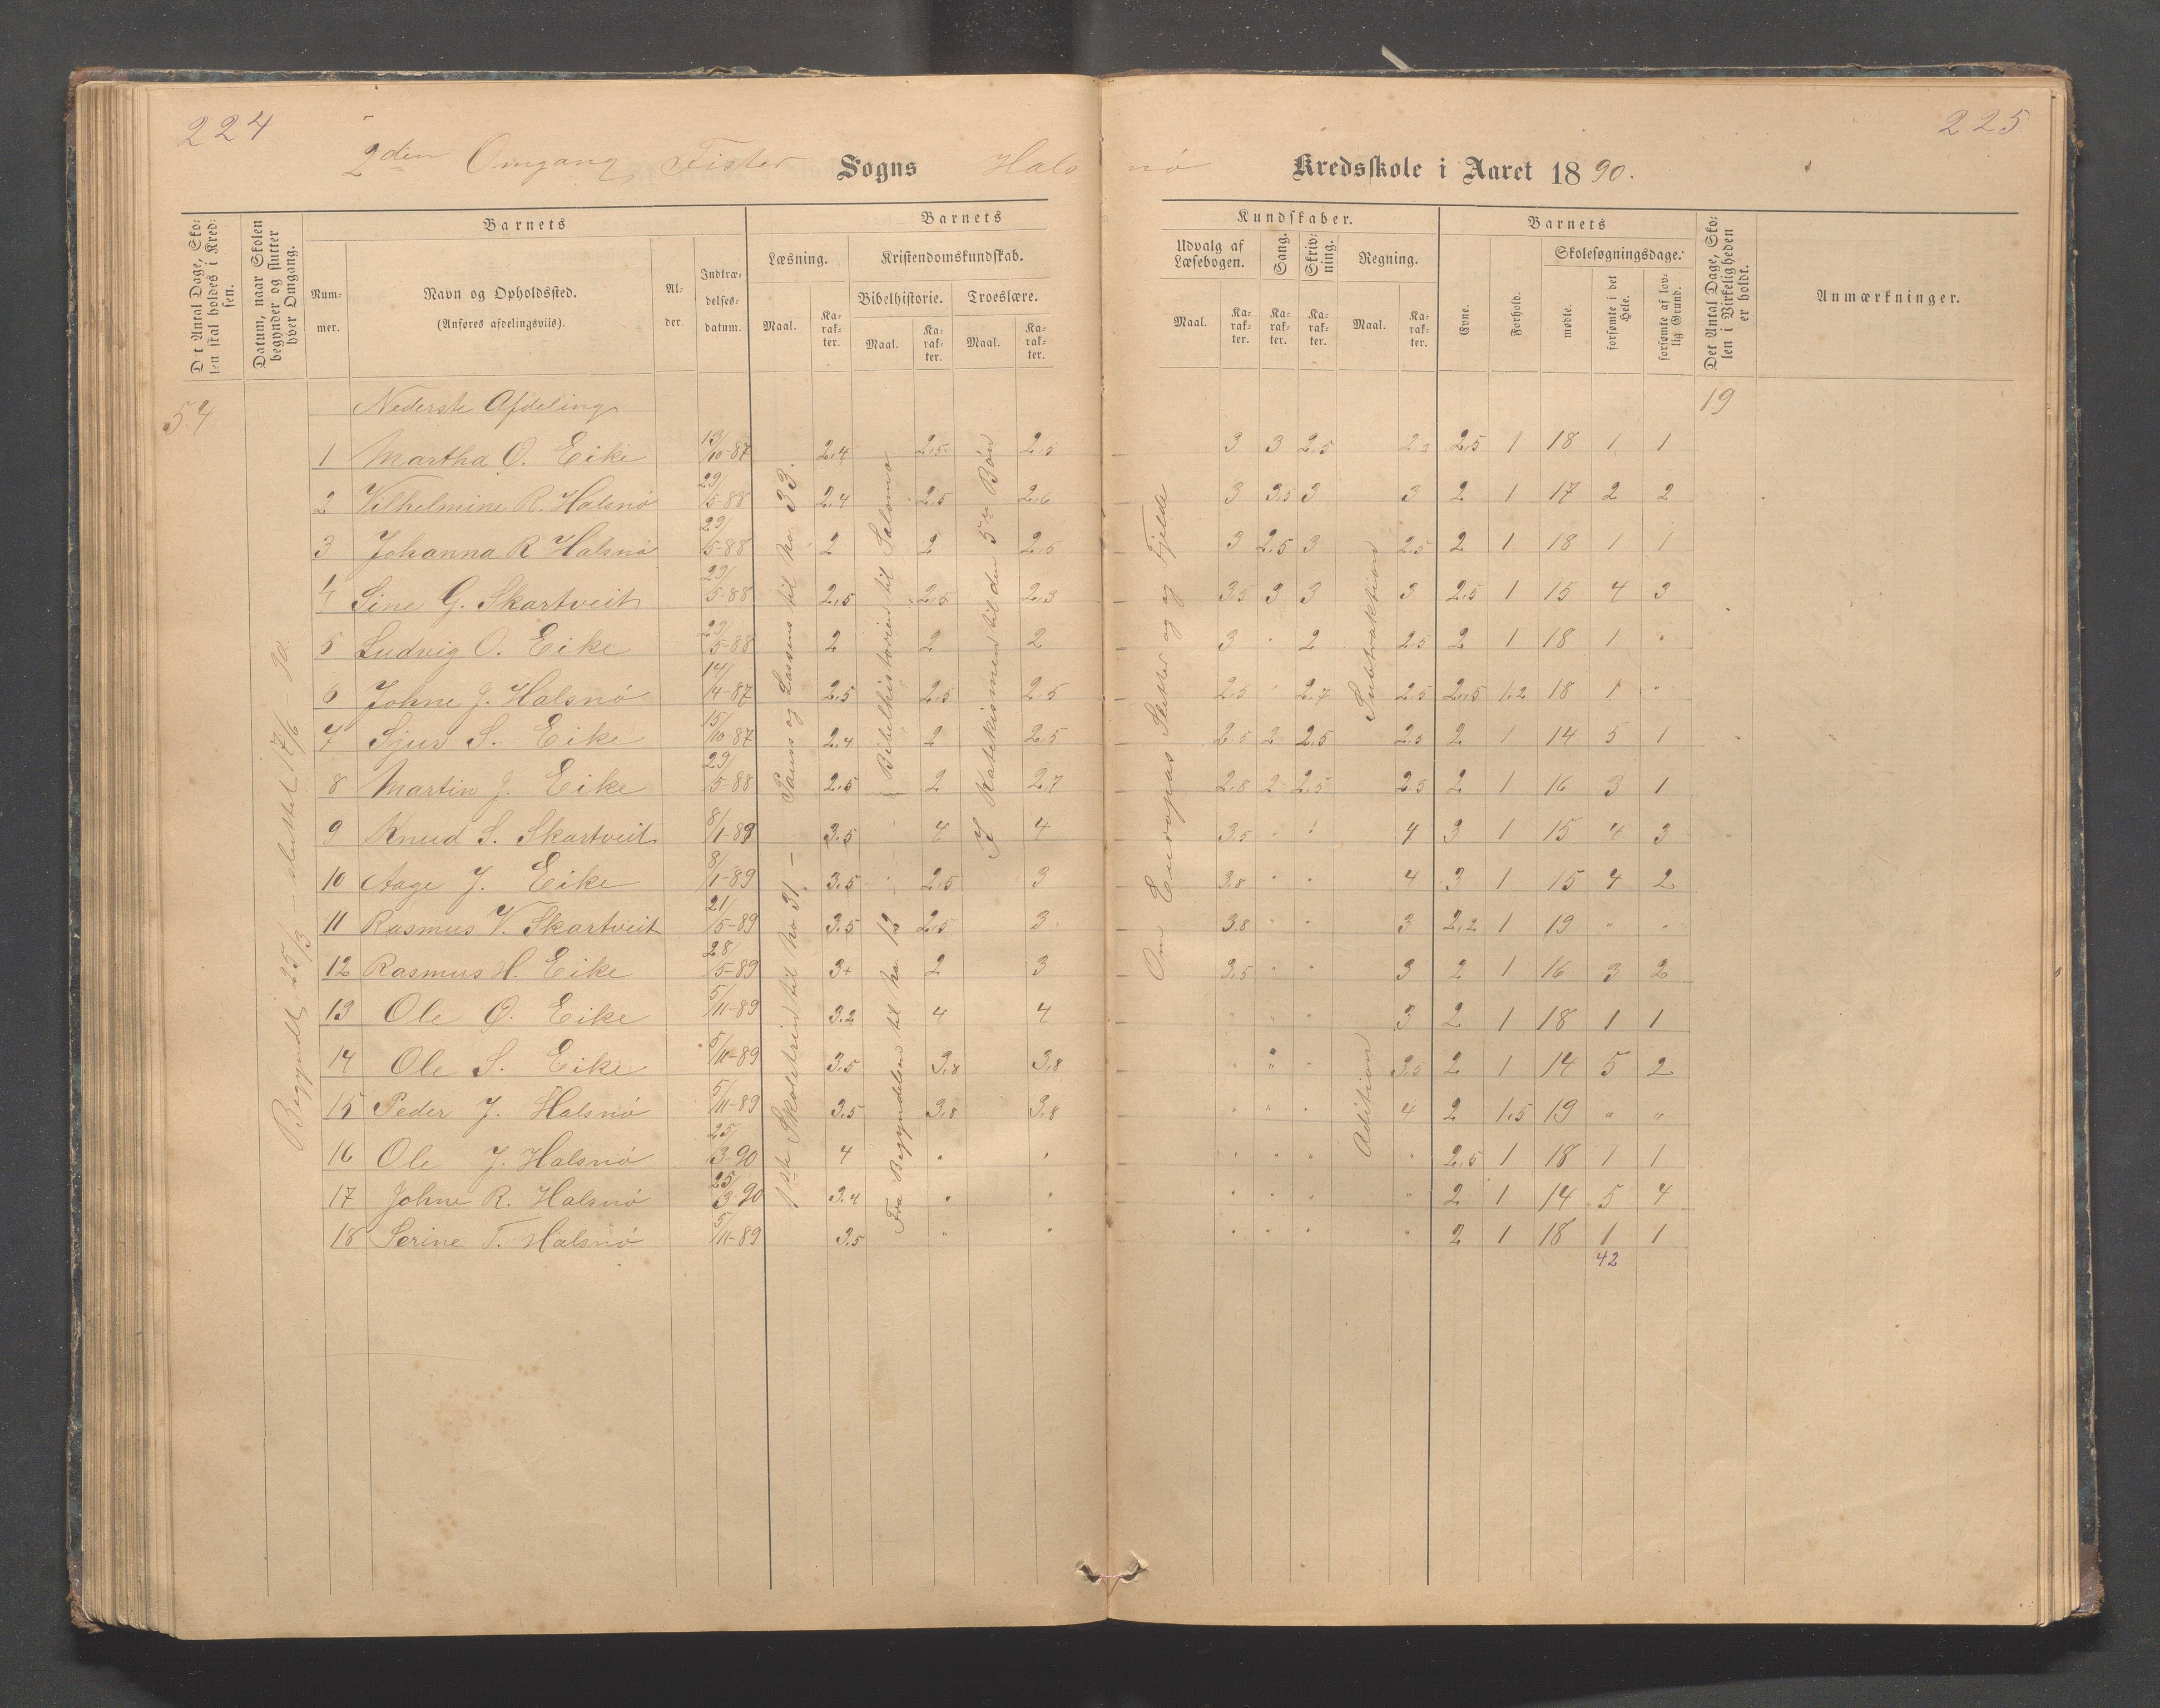 224
225
2den Omgang, Fister Sogns Halsnø Kredsskole i Aaret 1890.
Det Antal Dage, Skolen skal holdes i Kredsen.
Datum, naar Skolen begynder og slutter hver Omgang.
Barnets
Nummer.
Navn og Opholdssted.
(Anføres afdelingsviis).
Alder.
Indtrædelsesdatum.
Barnets Kundskaber.
Læsning.
Maal.
Karakter.
Kristendomskundskab.
Bibelhistorie.
Maal.
Karakter.
Troeslære.
Maal.
Karakter.
Udvalg af Læsebogen.
Maal.
Karakter.
Sang.
Karakter.
Skrivning.
Karakter.
Regning.
Maal.
Karakter.
Barnets
Evne.
Forhold.
Skolesøgningsdage.
mødte.
forsømte i det Hele.
forsømte af lovlig Grund.
Det Antal Dage, Skolen i Virkeligheden er holdt.
Anmærkninger.
54
Begyndt 25/3 – sluttet 17/6 90.
Nederste Afdeling
19
Pauss og Lassens til No. 33.
1ste Skoletrin til No 31 –
Bibelhistorien til Salomo
Fra Begyndelsen til No. 12
I Katekismen til den 5te Bøn
Om Europas Sletter og Fjelde
Subtraktion
Adition
1 Martha O. Eike 13/10-87 2,4 2,5 2,5 3 3 2,5 2,5 1 18 1 1
2 Vilhelmine R. Halsnø 29/5-88 2,4 2,5 2,6 3 3,5 3 3 2 1 17 2 2
3 Johanna R Halsnø 29/5-88 2 2 2,5 3 2,5 3 2,5 2 1 18 1 1
4 Sine G. Skartveit 29/5-88 2,5 2,5 2,3 3,5 3 3 3 2,5 1 15 4 3
5 Ludvig O. Eike 29/5-88 2 2 2 3 " 2 2,5 2 1 18 1 "
6 Johne J. Halsnø 14/4-87 2,5 2,5 2,5 2,5 " 2,7 2,5 2,5 1,2 18 1 "
7 Sjur S. Eike 15/10-87 2,4 2 2,5 2,5 2 2,5 2,5 2 1 14 5 1
8 Martin J. Eike 29/5-88 2,5 2 2,7 2,8 2 2,5 2,5 2 1 16 3 1
9 Knud S. Skartveit 8/1-89 3,5 4 4 3,5 " " 4 3 1 15 4 3
10 Aage J. Eike 8/1-89 3,5 2,5 3 3,8 " " 4 3 1 15 4 2
11 Rasmus V. Skartveit 21/5-89 3,5 2,5 3 3,8 " " 3 2,2 1 19 " "
12 Rasmus H. Eike 28/5-89 3+ 2 3 3,5 " " 3 2 1 16 3 2
13 Ole O. Eike 5/11-89 3,2 4 4 " " " 3 2 1 18 1 1
14 Ole S. Eike 5/11-89 3,5 3,8 3,8 " " " 3,5 2 1 14 5 2
15 Peder J. Halsnø 5/11-89 3,5 3,8 3,8 " " " 4 2 1,5 19 " "
16 Ole J. Halsnø 25/3-90 4 " " " " " " 2,5 1 18 1 1
17 Johne R. Halsnø 25/3-90 3,4 " " " " " " 2 1 14 5 4
18 Serine T. Halsnø 5/11-89 3,5 " " " " " " 2 1 18 1 1
42